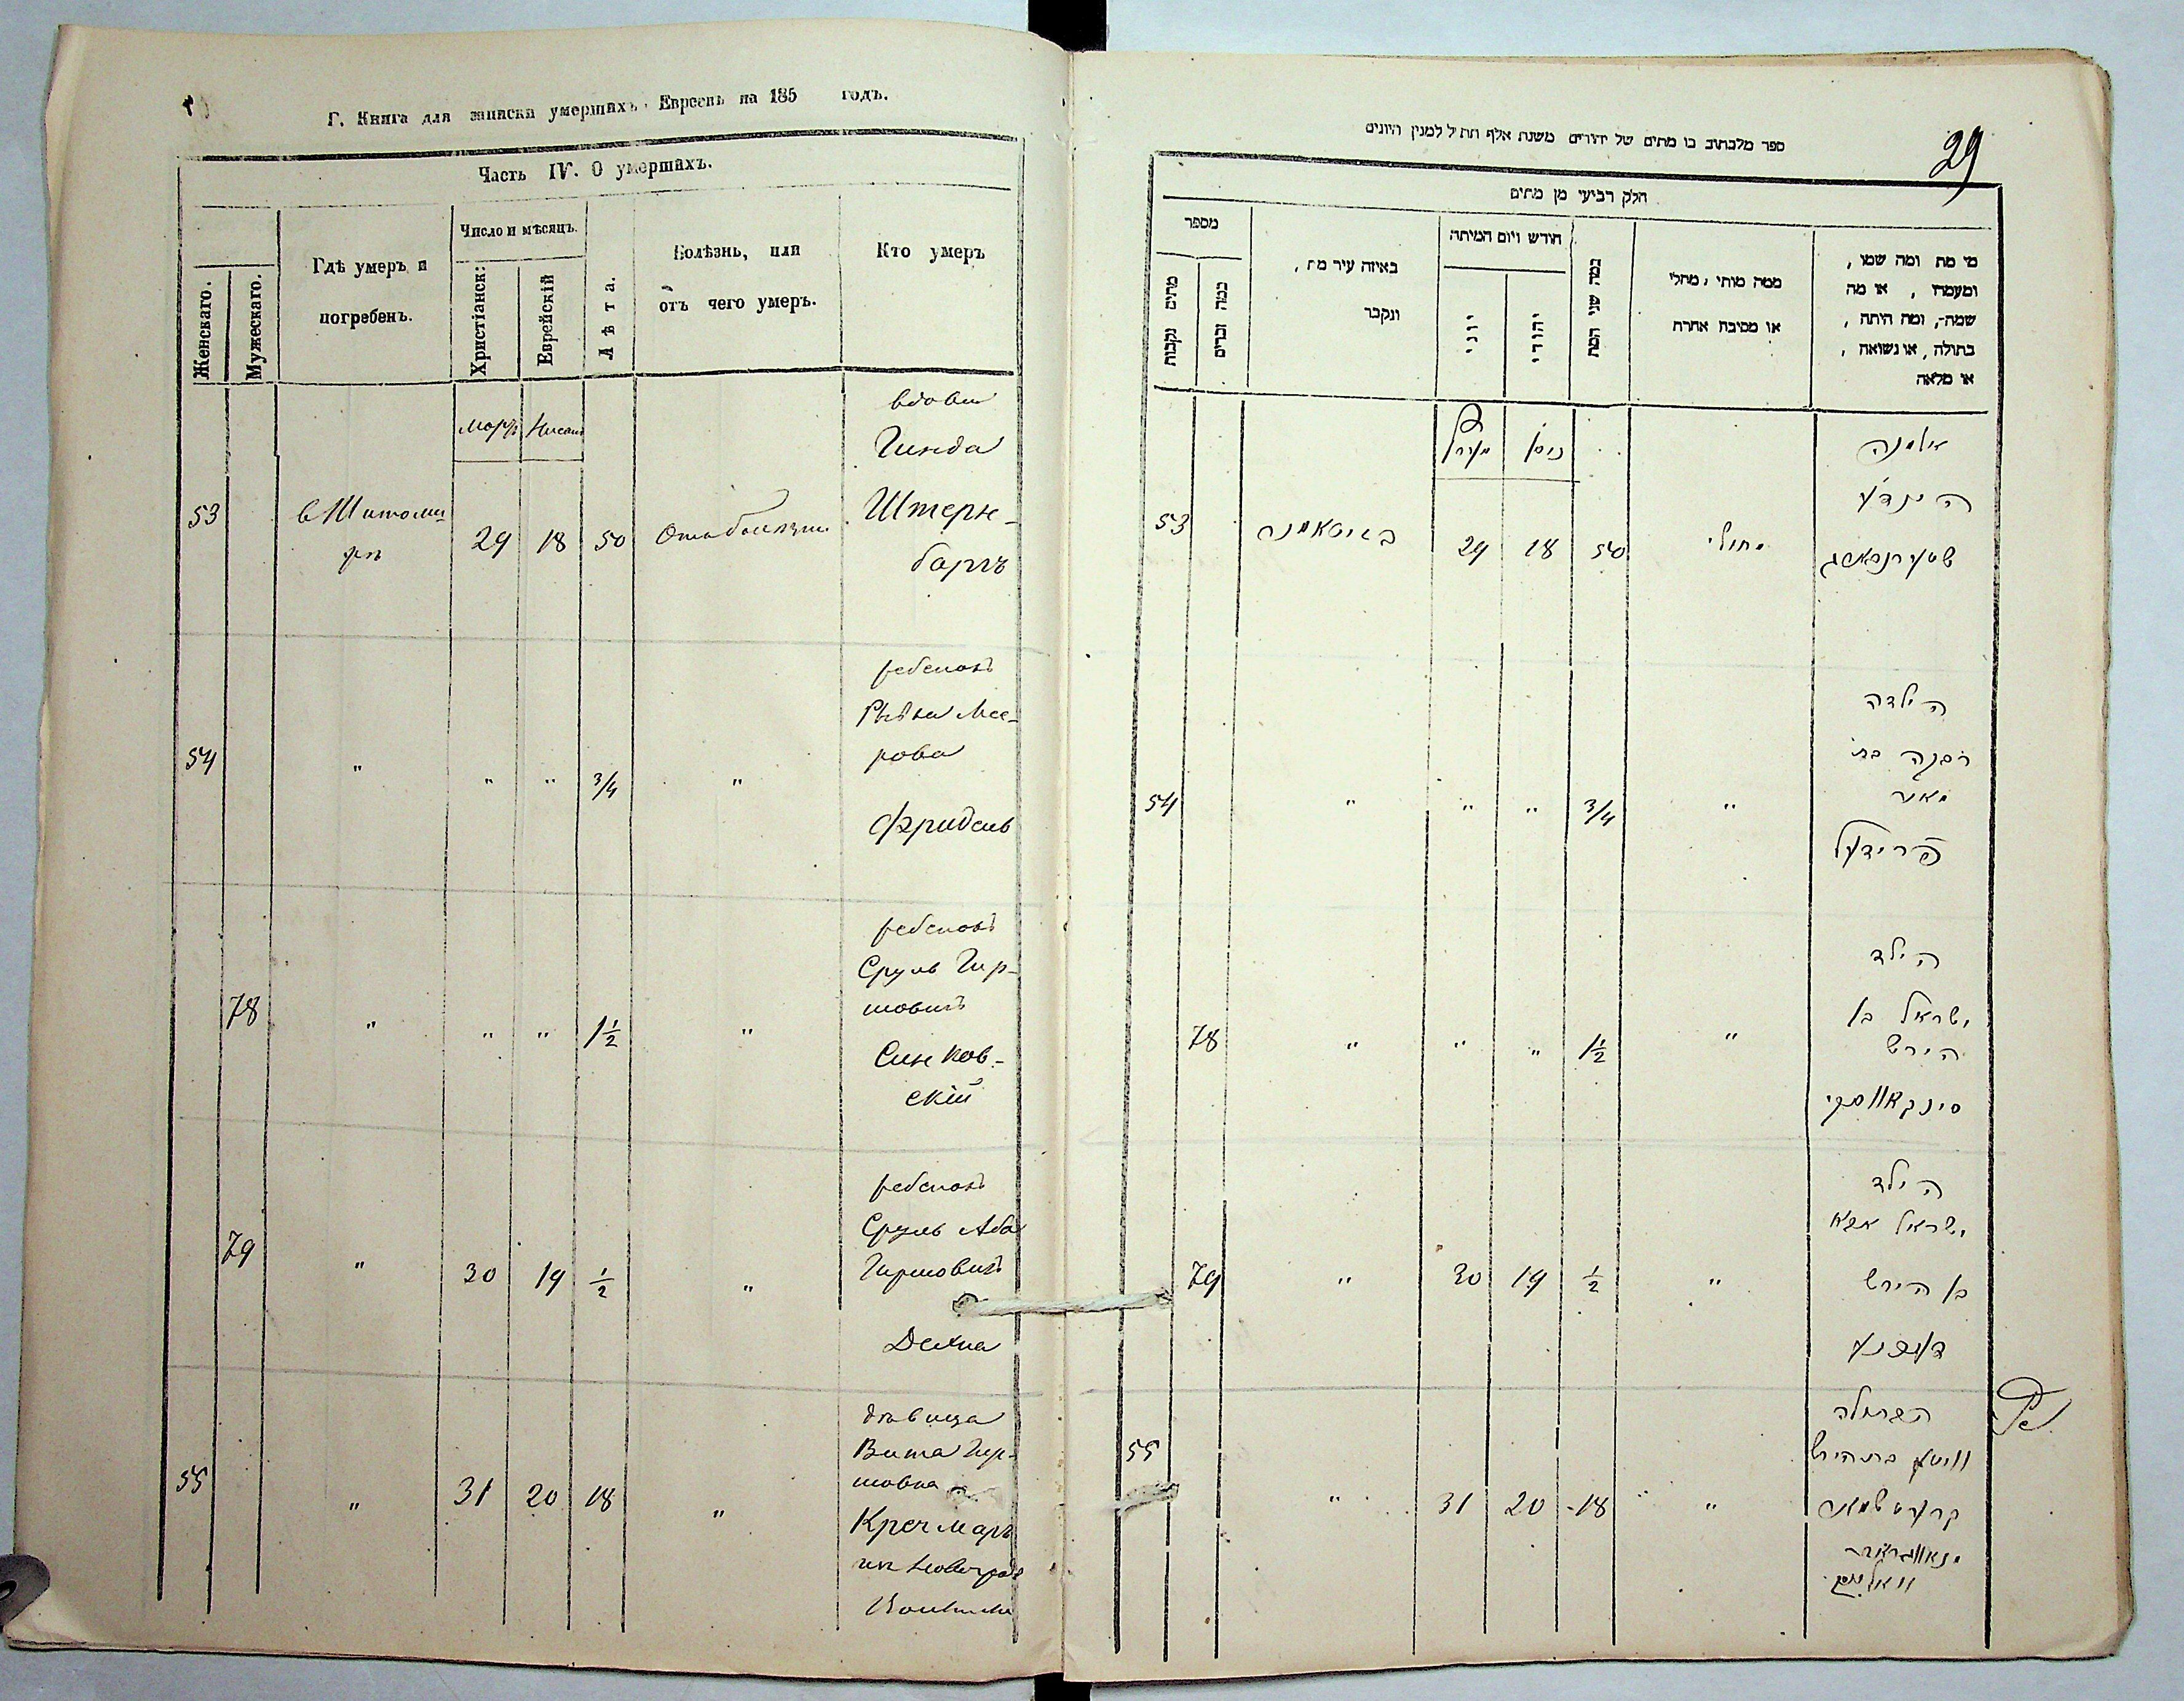 Г. Книга для записки умершихъ Евреевъ на 185 годъ.
Часть IV. О умершихъ.
Женскаго.
Мужескаго.
Гдѣ умеръ и
погребенъ.
Число и мѣсяцъ.
Христіанск:
Еврейскій
Лѣта.
Болѣзнь, или
отъ чего умеръ.
Кто умеръ
мартъ Нисанъ
53
в Житоми
рѣ
29 18 50
вдова
Гинда
Штерн-
баргъ
54 " " " 3/4 "
ребенокъ
Ривка Мее-
рова
Фридель
78 " " " 1 1/2 "
ребенокъ
Сруль Гер-
шовичъ
Синков-
скій
79 " 30 19 1/2 "
ребенокъ
Сруль Аба
Гершовичъ
55 " 31 20 18 "
дѣвица
Вита Гер-
шовна
Кречмаръ
29
ספר מלכתוב בו מתים של יהודים משנת אלף תת״ל למנין היונים
חלק רביעי מן מתים
מספר
מתים נקבות
כמה זכרים
באיזה עיר מת,
ונקבר
חודש ויום המיתה
יוני
יהודי
כמה שני המת
ממה מותו, מחלי
או מסיבה אחרת
מי מת ומה שמו,
ומעמדו, או מה
שמה-, ומה היתה,
בתולה, או נשואה,
או מלאה
ניסן
53 29 18 50
מחולי
אלמנה
הינדע
שטערנבארג
54 " " " 3/4 "
הילדה
רבקה בת
מאיר
פרידעל
78 " " " 1 1/2 "
הילד
ישראל בן
הירש
סינקאווסקי
79 " 30 19 1/2 "
הילד
ישראל אבא
בן הירש
55 " 31 20 18 "
הבתולה
וויטע בת הירש
קרעטשמאר